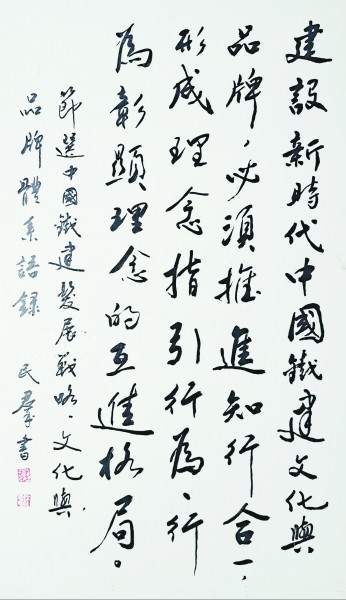 建設新時代中國鐵建文化與
品牌，必須推進知行合一，
形成理念指引行为、行
為彰顯理念的互進格局。
節選中國鐵建發展戰略、文化與
品牌體系語錄 民羣書